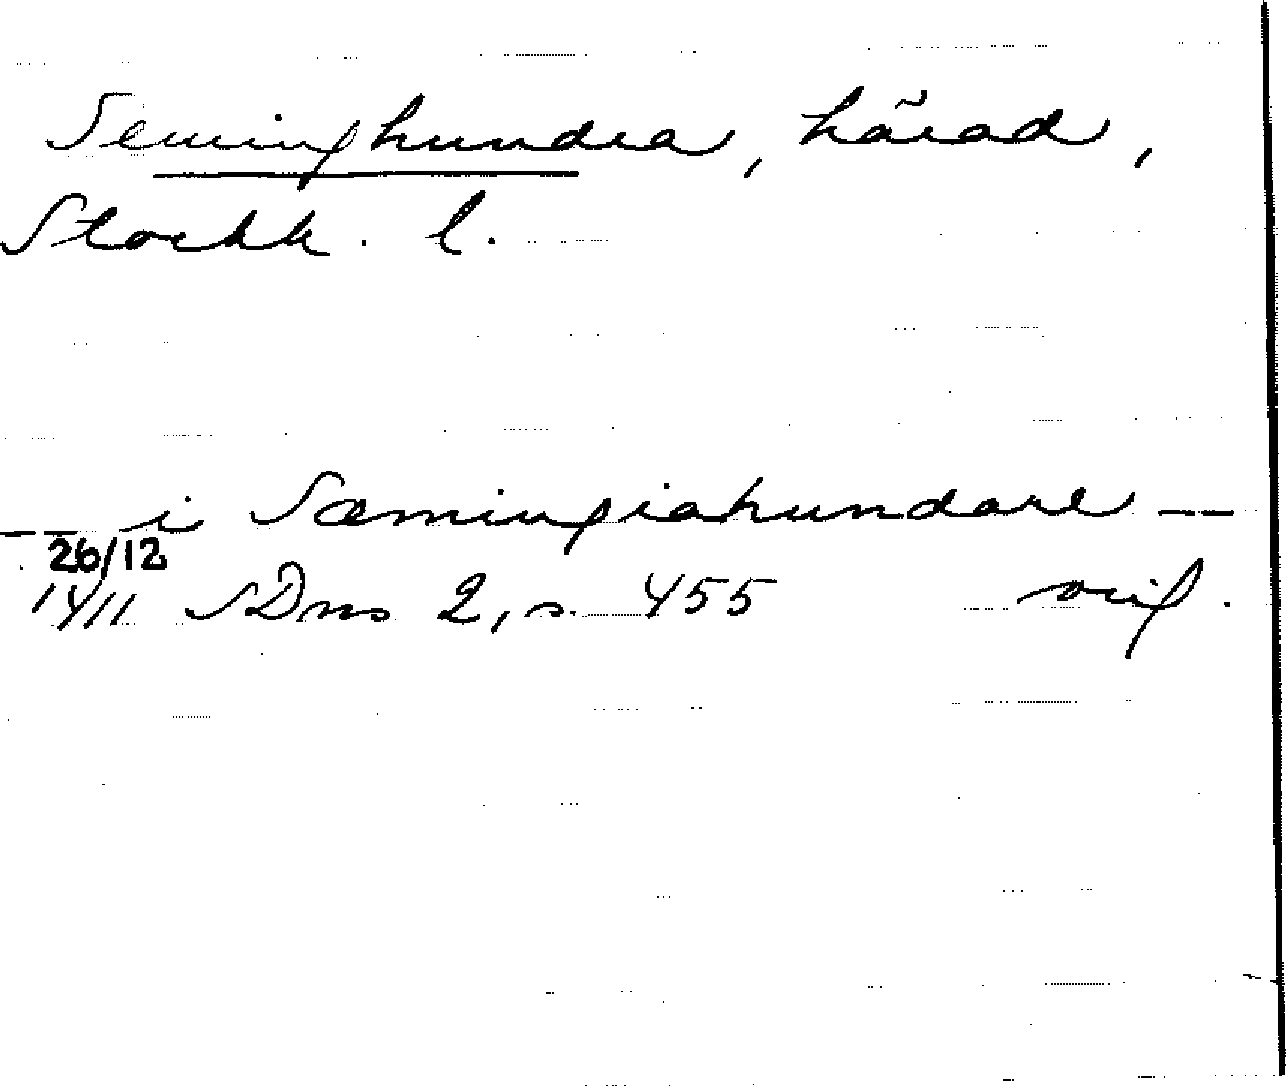 Seminghundra, härad,
Stockh. l.
— — i Sæmingiahundare —
26/12
1411 SDns 2, s. 455 orig.